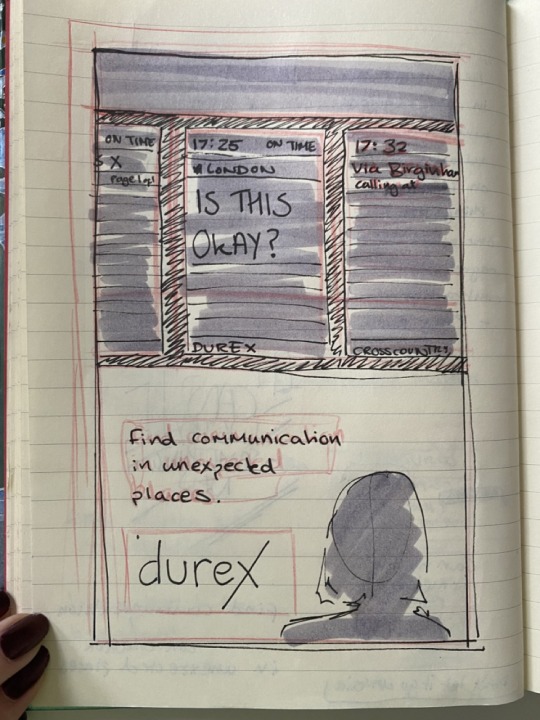 ON TIME
X
Page 1 of
17:25 ON TIME
LONDON
IS THIS
OKAY?
DUREX
17:32
Via Birginham
calling at
CROSSCOUNTRY
find communication
in unexpected
places.
durex